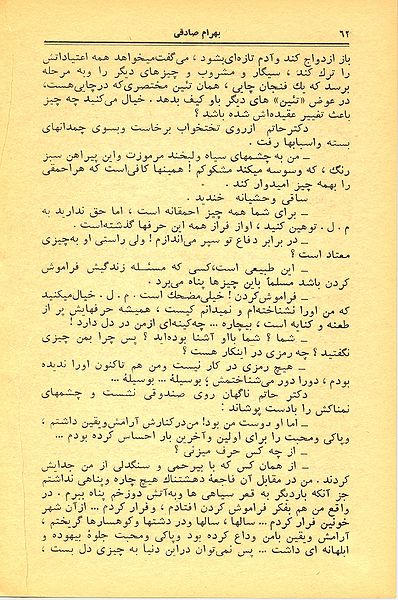 ۶۲
بهرام صادقی
باز ازدواج کند وآدم تازه‌ای‌بشود ، می‌گفت‌میخواهد همه اعتیاداتش
را ترك کند ، سیگار و مشروب و چیزهای دیگر را وبه مرحله
برسد که یك فنجان چایی ، همان تئین مختصری‌که درچایی‌هست،
در عوض «تئین» های دیگر باو کیف بدهد . خیال می‌کنید چه چیز
باعث تغییر عقیده‌اش شده باشد ؟
دکترحاتم ازروی تختخواب برخاست وبسوی چمدانهای
بسته واسبابها رفت .
ــ من به چشمهای سیاه ولبخند مرموزت واین پیراهن سبز
رنگ ، که وسوسه میکند مشکوکم ! همینها کافی‌است که هراحمقی
را بهمه چیز امیدوار کند .
ساقی وحشیانه خندید .
ــ برای شما همه چیز احمقانه است ، اما حق ندارید به
م . ل . توهین کنید ، اواز فراز همه این حرفها گذشته‌است .
ــ در برابر دفاع تو سپر می‌اندازم ! ولی راستی او به‌چیزی
معتاد است ؟
ــ این طبیعی است،کسی که مسئله زندگیش فراموش
کردن باشد مسلماً باین چیزها پناه می‌برد .
ــ فراموش‌کردن ! خیلی‌مضحك است . م . ل . خیال‌میکنید
که من اورا نشناخته‌ام و نمیدانم کیست ، همیشه حرفهایش پر از
طعنه و کنایه است ، بیچاره ... چه‌کینه‌ای ازمن در دل دارد !
ــ شما ؟ شما بااو آشنا بوده‌اید ؟ پس چرا بمن چیزی
نگفتید ؟ چه رمزی در اینکار هست ؟
ــ هیچ رمزی در کار نیست ومن هم تاکنون اورا ندیده
بودم ، دورا دور می‌شناختمش ؛ بوسیلهٔ ... بوسیلهٔ ...
دکتر حاتم ناگهان روی صندوقی نشست و چشمهای
نمناکش را بادست پوشاند :
ــ اما او دوست من بود! من‌درکنارش آرامش‌ویقین داشتم ،
وپاکی ومحبت را برای اولین وآخرین بار احساس کرده بودم ...
ــ از چه کس حرف میزنی ؟
ــ از همان کس که با بیرحمی و سنگدلی از من جدایش
کردند . من در مقابل آن فاجعهٔ دهشتناك هیچ چاره وپناهی نداشتم
جز آنکه باردیگر به قعر سیاهی ها وبه‌آتش دوزخم پناه ببرم . در
واقع من هم بفکر فراموش کردن افتادم ، وفرار کردم ... ازآن شهر
خونین فرار کردم ... سالها ، سالها ودر دشتها وکوهسارها گریختم ،
آرامش ویقین بامن وداع کرده بود وپاکی ومحبت جلوهٔ بیهوده و
ابلهانه ای داشت ... پس نمی‌توان دراین دنیا به چیزی دل بست ،